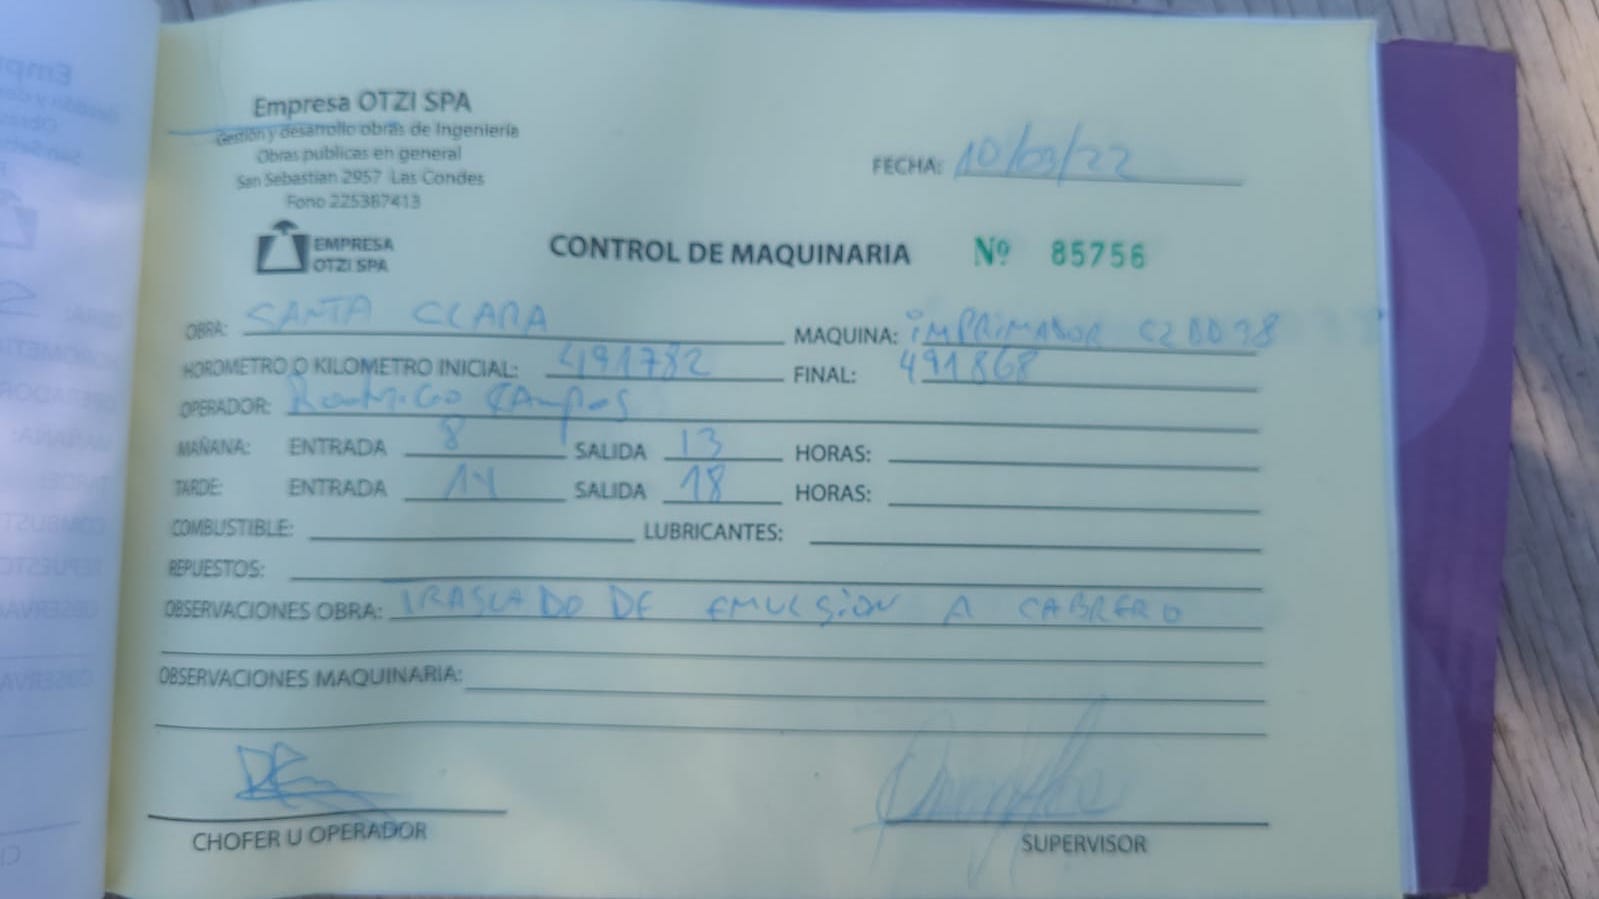 Empresa OTZI SPA
Gestión y desarrollo obras de Ingeniería
Obras publicas en general
San Sebastian 2957 Las Condes
Fono 225387413
FECHA: 10/03/22
EMPRESA
OTZI SPA
CONTROL DE MAQUINARIA Nº 85756
OBRA: SANTA CLARA MAQUINA: iMPRiMADOR
HOROMETRO O KILOMETRO INICIAL: 491782 FINAL: 491868
OPERADOR: Rodrigo Campos
MAÑANA: ENTRADA 8 SALIDA 13 HORAS:
TARDE: ENTRADA 14 SALIDA 18 HORAS:
COMBUSTIBLE: LUBRICANTES:
REPUESTOS:
OBSERVACIONES OBRA: TRASLADO DE EMULSION A CABRERO
OBSERVACIONES MAQUINARIA:
CHOFER U OPERADOR
SUPERVISOR